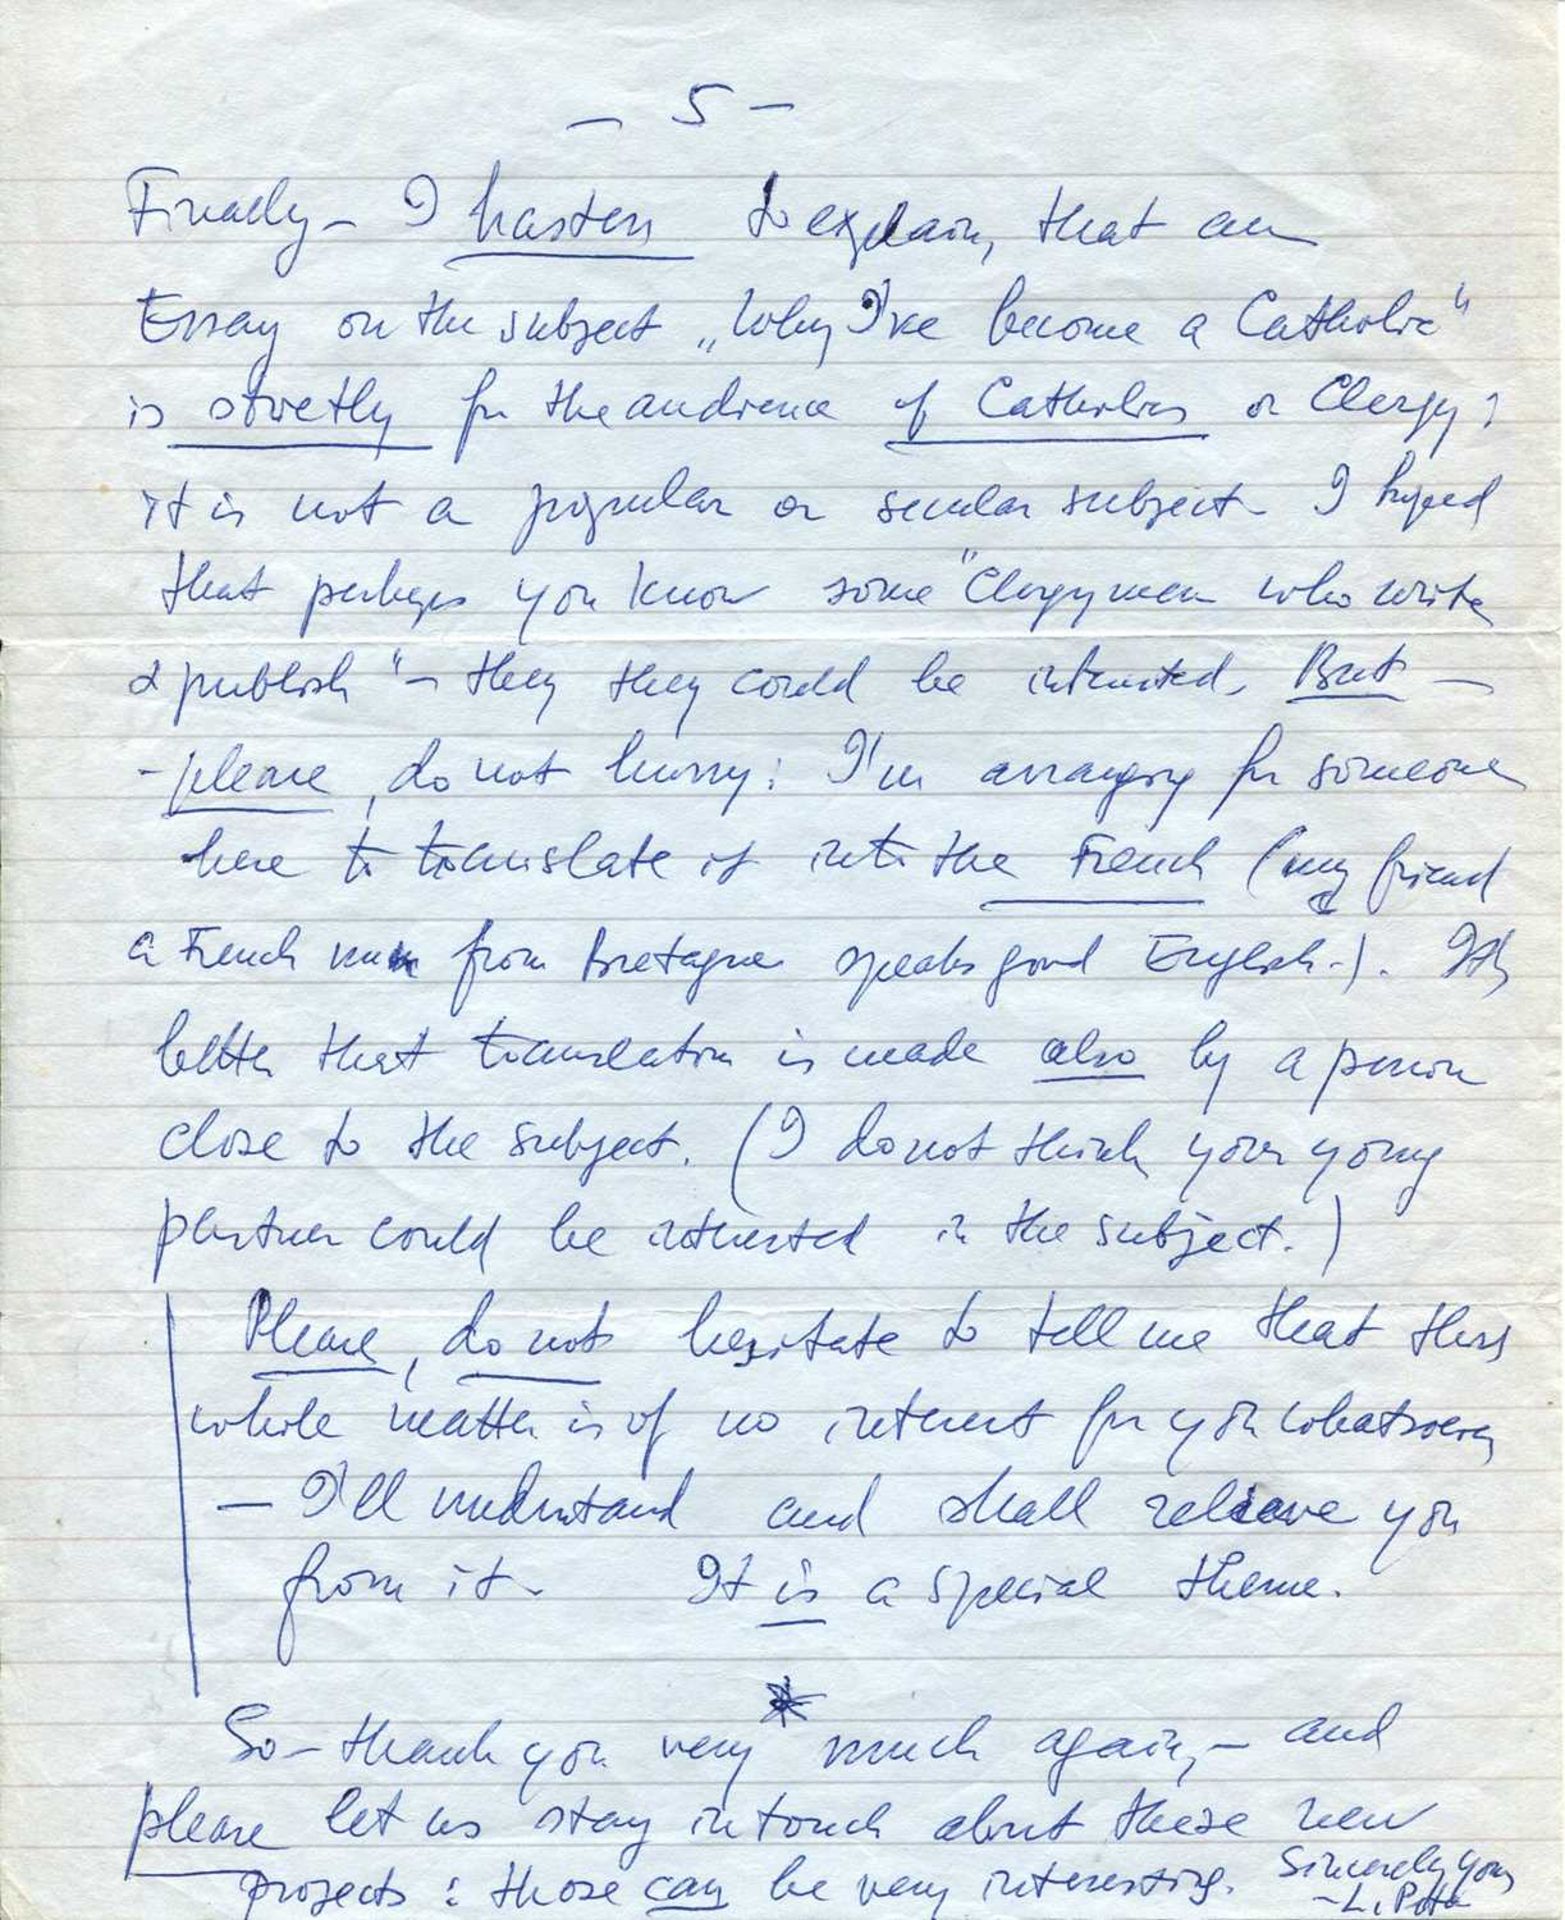 – 5 –
Finally – I hasten to explain, that an
Essay on the subject „Why I've become a Catholic"
is strictly for the audience of Catholics or Clergy:
it is not a popular or secular subject. I hoped
that perhaps you know some "Clergymen who write
& publish" – they they could be interested. But –
– please, do not hurry: I'm arranging for someone
here to translate it into the French (my friend
a French man from Bretagne speaks good English.). It's
better that translation is made also by a person
close to the subject. (I do not think your young
partner could be interested in the subject.)
Please, do not hesitate to tell me that this
whole matter is of no interest for you whatsoever
– I'll understand and shall relieve you
from it. It is a special theme.
*
So – thank you very much again, – and
please let us stay in touch about these new
projects: those can be very interesting. Sincerely yours
– L.